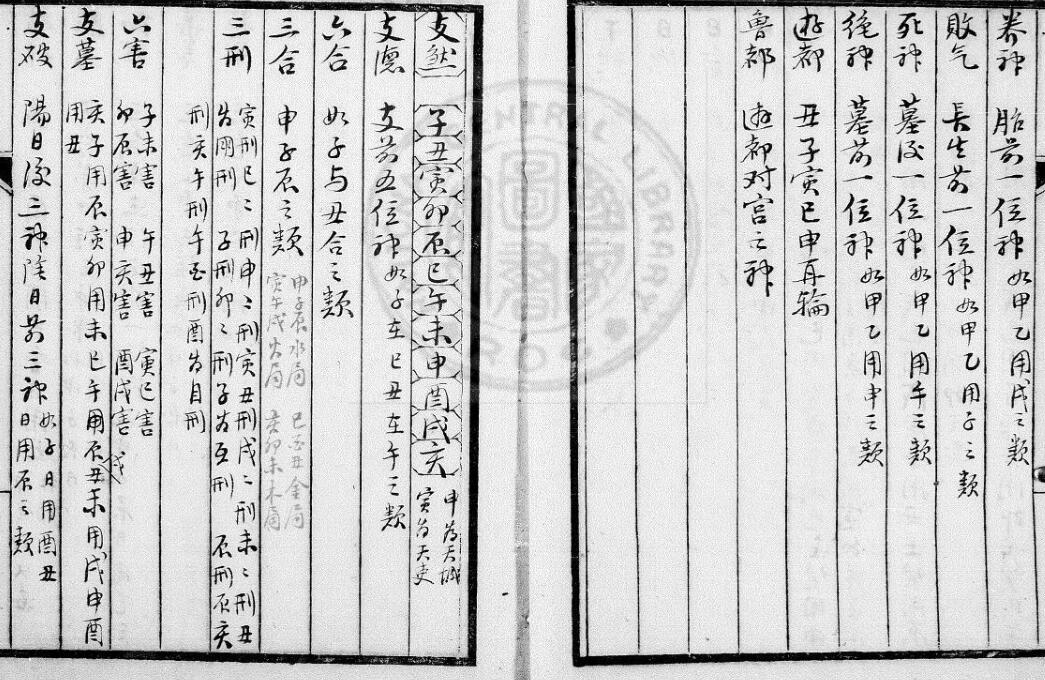 养神 胎前一位神如甲乙用戌之類
敗气 長生前一位神如甲乙用子之類
死神 墓後一位神如甲乙用午之類
絶神 墓前一位神如甲乙用申之類
遊都 丑子寅巳申再輪
魯都 遊都对宫之神
支煞 子丑寅卯辰巳午未申酉戌亥
申为天城
寅为天吏
支德 支前五位神如子在巳丑在午之類
六合 如子与丑合之類
三合 申子辰之類
申子辰水局 巳酉丑金局
寅午戌火局 亥卯未木局
三刑 寅刑巳巳刑申申刑寅丑刑戌戌刑未未刑丑
为朋刑 子刑卯卯刑子为互刑 辰刑辰亥
刑亥午刑午酉刑酉为自刑
六害 子未害 午丑害 寅巳害
卯辰害 申亥害 酉戌害
支墓 亥子用辰寅卯用未巳午用戌辰丑未用戌申酉
用丑
支破 陽日後三神陰日前三神如子日用酉丑
日用辰之類